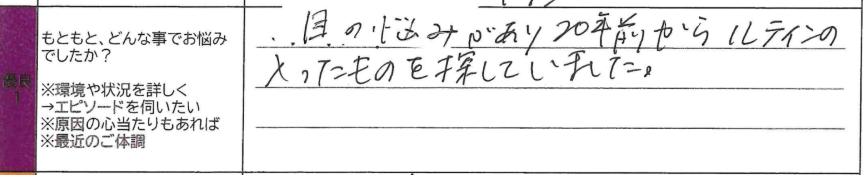 優良
1
もともと、どんな事でお悩み
でしたか？
※環境や状況を詳しく
→エピソードを伺いたい
※原因の心当たりもあれば
※最近のご体調
目の悩みがあり20年前からルテインの
入ったものを探していました。